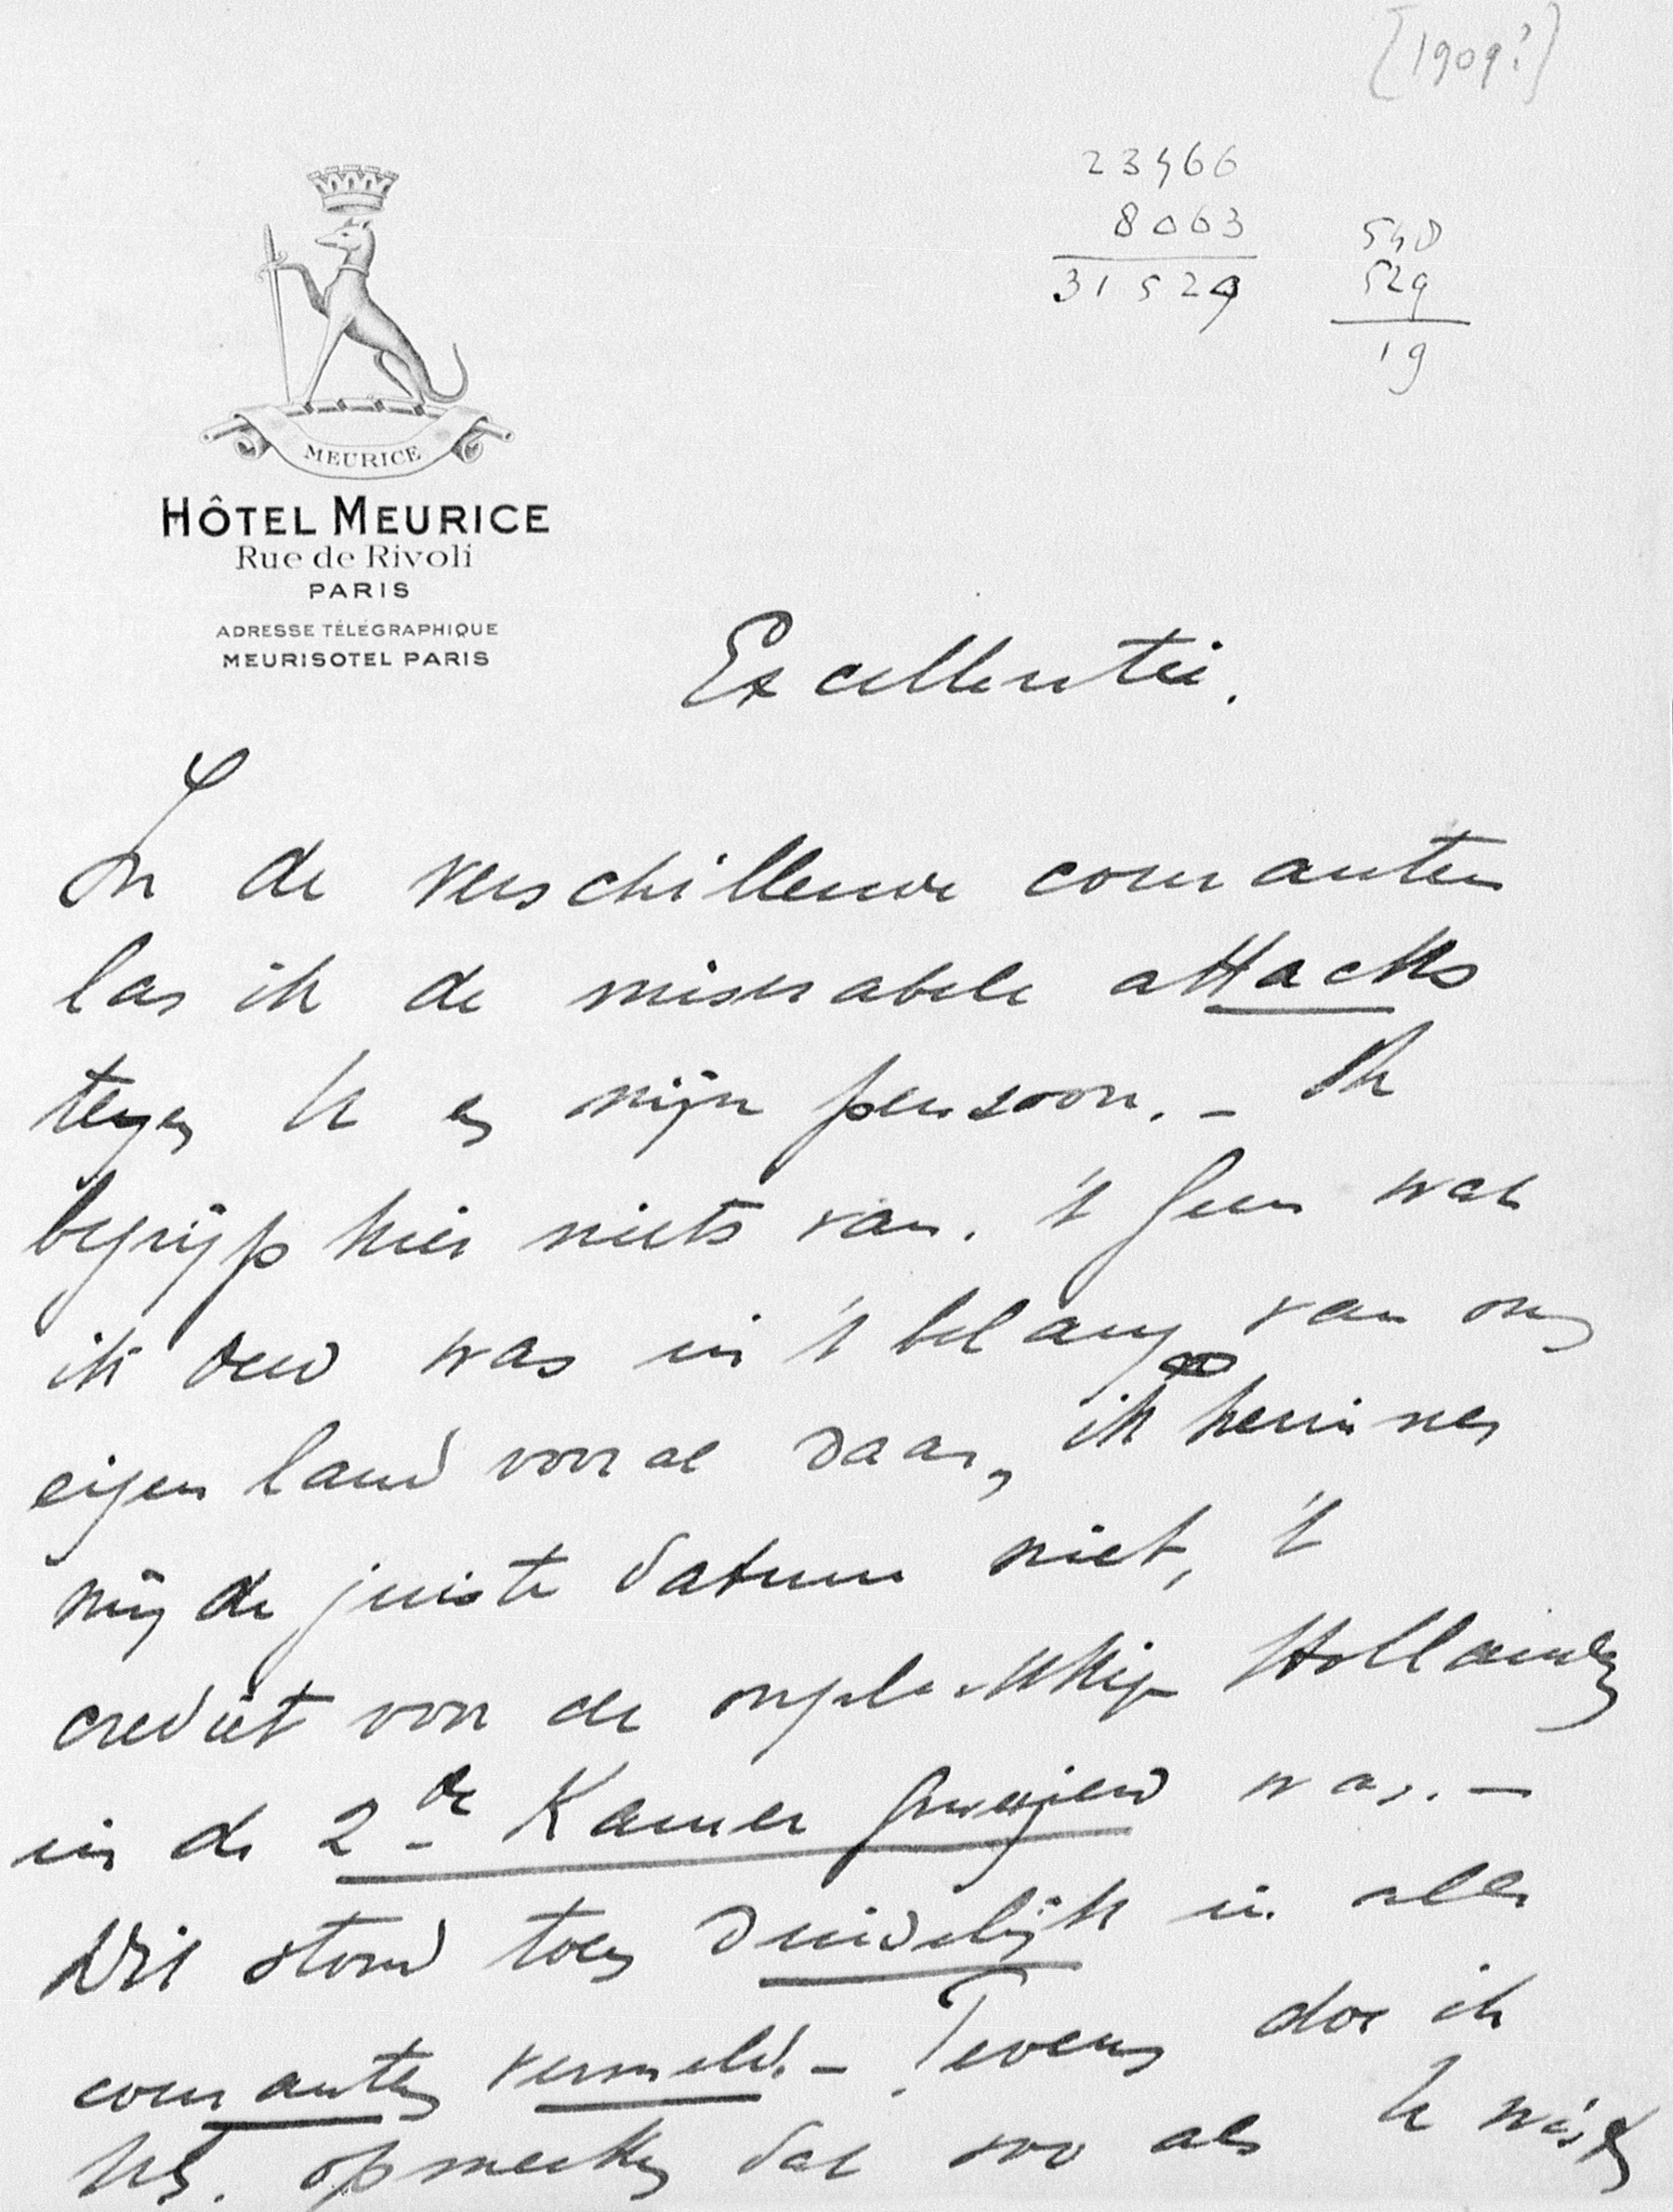 [1909?]
23466
8063
31529
548
529
19
MEURICE
HÔTEL MEURICE
Rue de Rivoli
PARIS
ADRESSE TÉLÉGRAPHIQUE
MEURISOTEL PARIS
Excellentie.
In de verschillende couranten
las ik de miserabele attacks
tegen U en mijn persoon. – Ik
begrijp hier niets van. 't geen wat
ik deed was in 't belang van ons
eigen land vooral daar, ik herinner
mij de juiste datum niet, 't
crediet voor de ongelukkige Hollanders
in de 2de Kamer geweigerd was. –
Dit stond toen duidelijk in alle
couranten vermeld. – Tevens doe ik
UE. opmerken dat zoo als U